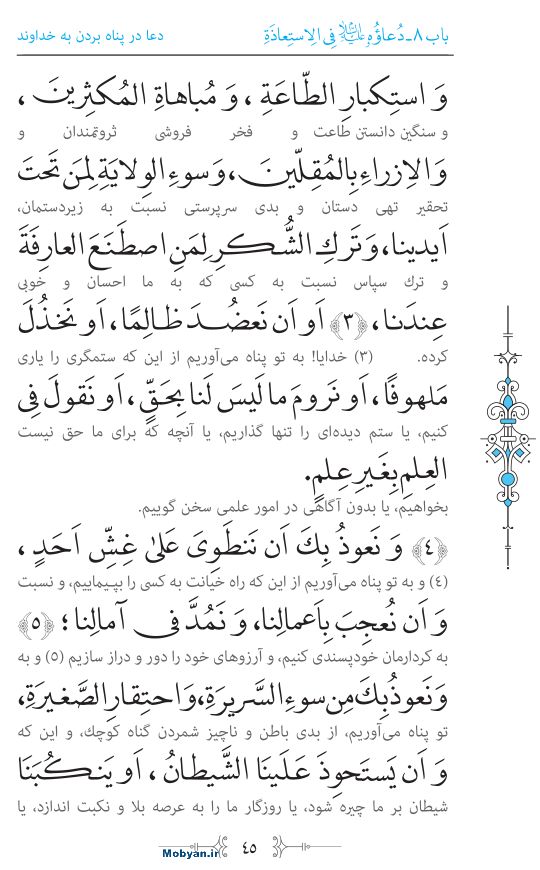 باب ۸ـ دُعاؤُه علیه‌السلام فِی الِاستِعاذَةِ
دعا در پناه بردن به خداوند
وَ استِکبارِ الطّاعَةِ ، وَ مُباهاةِ المُکثِرینَ ،
و سنگین دانستن طاعت و فخر فروشی ثروتمندان و
وَالاِزراءِ بِالمُقِلّینَ، وَ سوءِ الوِلایَةِ لِمَن تَحتَ
تحقیر تهی دستان و بدی سرپرستی نسبت به زیردستمان،
اَیدینا، وَ تَرکِ الشُّکرِ لِمَنِ اصطَنَعَ العارِفَةَ
و ترك سپاس نسبت به کسی که به ما احسان و خوبی
عِندَنا، ﴿۳﴾ اَو اَن نَعضُدَ ظالِمًا، اَو نَخذُلَ
کرده. (۳) خدایا! به تو پناه می‌آوریم از این که ستمگری را یاری
مَلهوفًا، اَو نَرومَ ما لَیسَ لَنا بِحَقٍّ، اَو نَقولَ فِی
کنیم، یا ستم دیده‌ای را تنها گذاریم، یا آنچه که برای ما حق نیست
العِلمِ بِغَیرِ عِلمٍ.
بخواهیم، یا بدون آگاهی در امور علمی سخن گوییم.
﴿۴﴾ وَ نَعوذُ بِكَ اَن نَنطَوِیَ عَلیٰ غِشِّ اَحَدٍ ،
(۴) و به تو پناه می‌آوریم از این که راه خیانت به کسی را بپیماییم، و نسبت
وَ اَن نُعجِبَ بِاَعمالِنا، وَ نَمُدَّ فی آمالِنا ؛ ﴿۵﴾
به کردارمان خودپسندی کنیم، و آرزوهای خود را دور و دراز سازیم (۵) و به
وَ نَعوذُ بِكَ مِن سوءِ السَّریرَةِ، وَ احتِقارِ الصَّغیرَةِ،
تو پناه می‌آوریم، از بدی باطن و ناچیز شمردن گناه کوچك، و این که
وَ اَن یَستَحوِذَ عَلَینَا الشَّیطانُ ، اَو یَنکُبَنَا
شیطان بر ما چیره شود، یا روزگار ما را به عرصه بلا و نکبت اندازد، یا
۴۵
Mobyan.ir